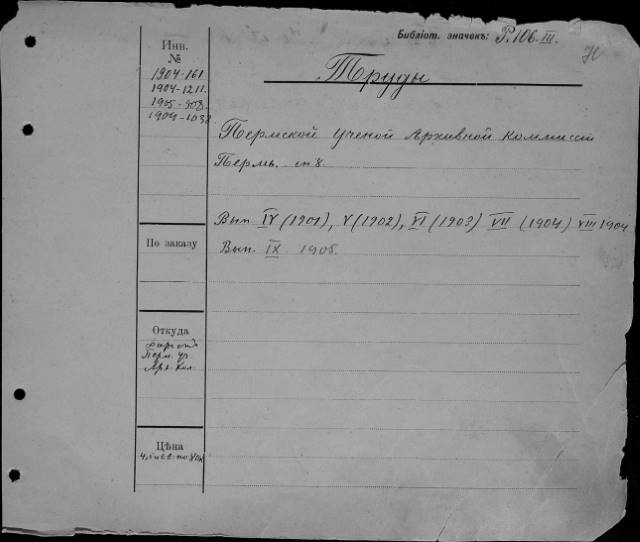 Библіот. значекъ: Р.106.III.
Инв.
№
1904-161
1904-1211
1905-508
1904-1038
Труды
Пермской Ученой Архивной Коммиссіи
Пермь. in 8
Вып. IV (1901), V (1902), VI (1903) VII (1904) VIII 1904
Вып. IX 1905.
По заказу
Откуда
Перм. уч.
Арх. Ком.
Цѣна